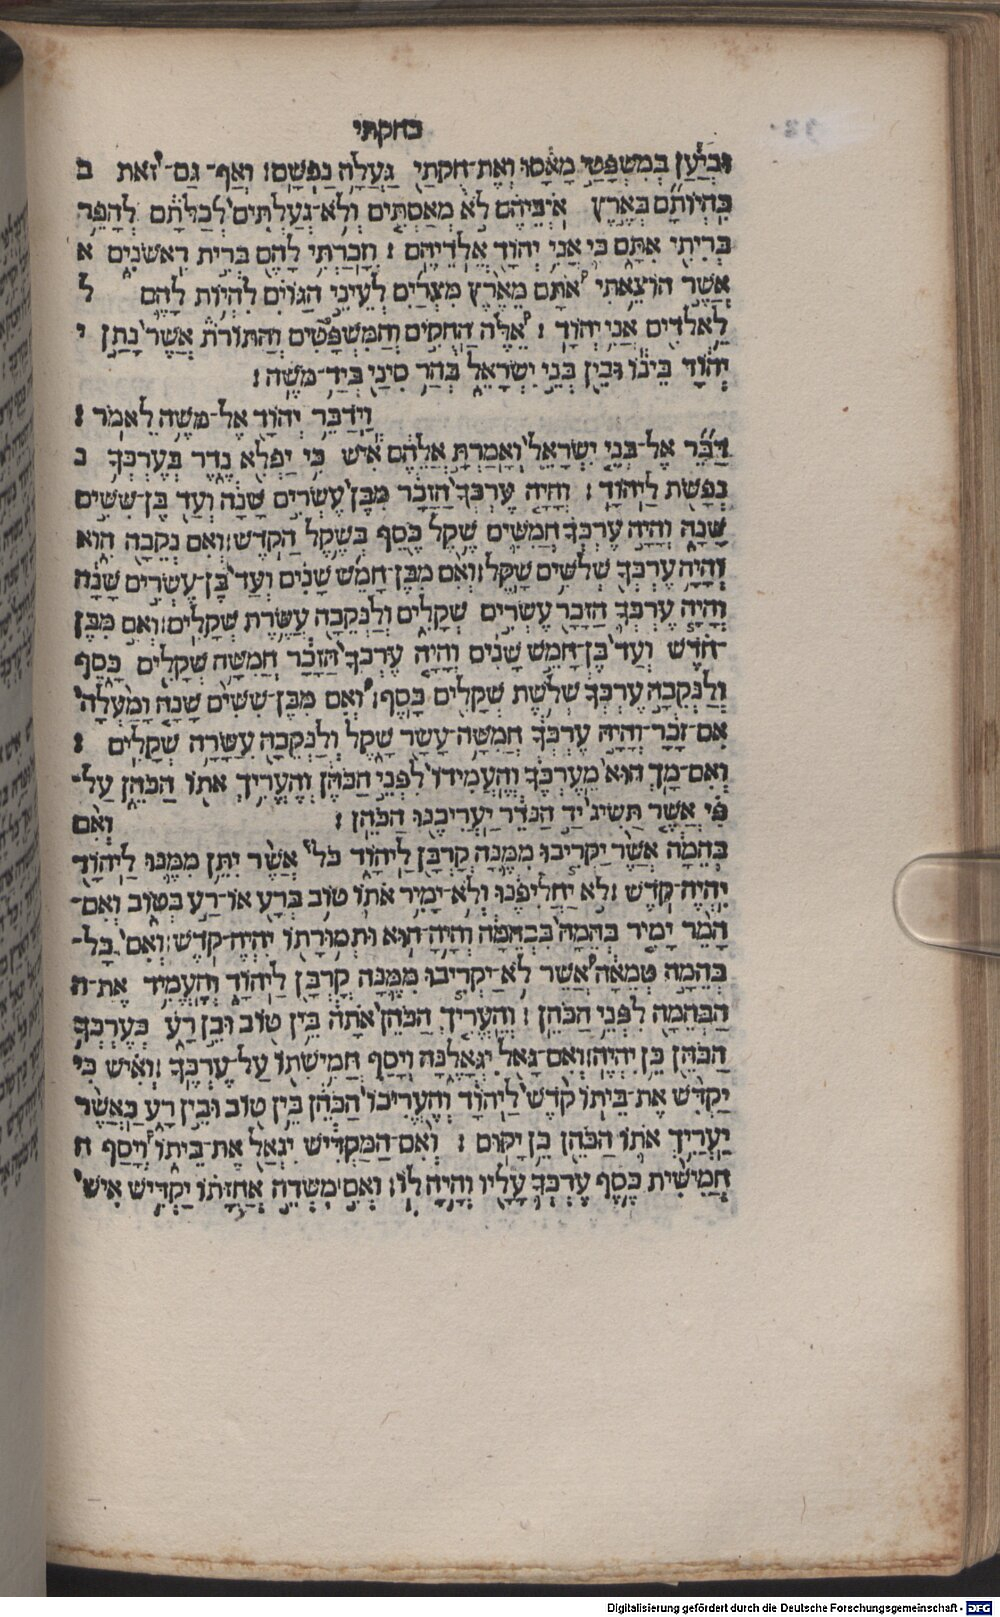 בחקתי
וּבְיַעַן בְּמִשְׁפָּטַי מָאָסוּ וְאֶת־חֻקֹּתַי גָּעֲלָה נַפְשָׁם׃ וְאַף־ גַּם־זֹאת ב
בִּהְיוֹתָם בְּאֶרֶץ אֹיְבֵיהֶם לֹא מְאַסְתִּים וְלֹא־גְעַלְתִּים לְכַלֹּתָם לְהָפֵר
בְּרִיתִי אִתָּם כִּי אֲנִי יְהוָֹד אֱלֹדֵיהֶם׃ וְזָכַרְתִּי לָהֶם בְּרִית רִאשֹׁנִים א
אֲשֶׁר הוֹצֵאתִי אֹתָם מֵאֶרֶץ מִצְרַיִם לְעֵינֵי הַגּוֹיִם לִהְיוֹת לָהֶם ל
לֵאלֹדִים אֲנִי יְהוָֹד׃ אֵלֶּה הַחֻקִּים וְהַמִּשְׁפָּטִים וְהַתּוֹרֹת אֲשֶׁר נָתַן י
יְהוָֹד בֵּינוֹ וּבֵין בְּנֵי יִשְׂרָאֵל בְּהַר סִינַי בְּיַד־מֹשֶׁה׃
וַיְדַבֵּר יְהוָֹד אֶל־מֹשֶׁה לֵּאמֹר׃
דַּבֵּר אֶל־בְּנֵי יִשְׂרָאֵל וְאָמַרְתָּ אֲלֵהֶם אִישׁ כִּי יַפְלִא נֶדֶר בְּעֶרְכְּךָ נ
נְפָשֹׁת לַיהוָֹד׃ וְהָיָה עֶרְכְּךָ הַזָּכָר מִבֶּן עֶשְׂרִים שָׁנָה וְעַד בֶּן־שִׁשִּׁים
שָׁנָה וְהָיָה עֶרְכְּךָ חֲמִשִּׁים שֶׁקֶל כֶּסֶף בְּשֶׁקֶל הַקֹּדֶשׁ׃ וְאִם נְקֵבָה הִוא
וְהָיָה עֶרְכְּךָ שְׁלֹשִׁים שָׁקֶל׃ וְאִם מִבֶּן־חָמֵשׁ שָׁנִים וְעַד בֶּן־עֶשְׂרִים שָׁנָה
וְהָיָה עֶרְכְּךָ הַזָּכָר עֶשְׂרִים שְׁקָלִים וְלַנְּקֵבָה עֲשֶׂרֶת שְׁקָלִים׃ וְאִם מִבֶּן
־חֹדֶשׁ וְעַד בֶּן־חָמֵשׁ שָׁנִים וְהָיָה עֶרְכְּךָ הַזָּכָר חֲמִשָּׁה שְׁקָלִים כָּסֶף
וְלַנְּקֵבָה עֶרְכְּךָ שְׁלֹשֶׁת שְׁקָלִים כָּסֶף׃ וְאִם מִבֶּן־שִׁשִּׁים שָׁנָה וָמַעְלָה
אִם־זָכָר וְהָיָה עֶרְכְּךָ חֲמִשָּׁה־עָשָׂר שָׁקֶל וְלַנְּקֵבָה עֲשָׂרָה שְׁקָלִים׃
וְאִם־מָךְ הוּא מֵעֶרְכֶּךָ וְהֶעֱמִידוֹ לִפְנֵי הַכֹּהֵן וְהֶעֱרִיךְ אֹתוֹ הַכֹּהֵן עַל־
פִּי אֲשֶׁר תַּשִּׂיג יַד הַנֹּדֵר יַעֲרִיכֶנּוּ הַכֹּהֵן׃ וְאִם
בְּהֵמָה אֲשֶׁר יַקְרִיבוּ מִמֶּנָּה קָרְבָּן לַיהוָֹד כֹּל אֲשֶׁר יִתֵּן מִמֶּנּוּ לַיהוָֹד
יִהְיֶה־קֹּדֶשׁ׃ לֹא יַחֲלִיפֶנּוּ וְלֹא־יָמִיר אֹתוֹ טוֹב בְּרָע אוֹ־רַע בְּטוֹב וְאִם־
הָמֵר יָמִיר בְּהֵמָה בִּבְהֵמָה וְהָיָה־הוּא וּתְמוּרָתוֹ יִהְיֶה־קֹּדֶשׁ׃ וְאִם כָּל־
בְּהֵמָה טְמֵאָה אֲשֶׁר לֹא־יַקְרִיבוּ מִמֶּנָּה קָרְבָּן לַיהוָֹד וְהֶעֱמִיד אֶת־ה
הַבְּהֵמָה לִפְנֵי הַכֹּהֵן׃ וְהֶעֱרִיךְ הַכֹּהֵן אֹתָהּ בֵּין טוֹב וּבֵין רָע כְּעֶרְכְּךָ
הַכֹּהֵן כֵּן יִהְיֶה׃ וְאִם־גָּאֹל יִגְאָלֶנָּה וְיָסַף חֲמִישִׁתוֹ עַל־עֶרְכֶּךָ׃ וְאִישׁ כִּי
יַקְדִּשׁ אֶת־בֵּיתוֹ קֹדֶשׁ לַיהוָֹד וְהֶעֱרִיכוֹ הַכֹּהֵן בֵּין טוֹב וּבֵין רָע כַּאֲשֶׁר
יַעֲרִיךְ אֹתוֹ הַכֹּהֵן כֵּן יָקוּם׃ וְאִם־הַמַּקְדִּישׁ יִגְאַל אֶת־בֵּיתוֹ וְיָסַף ח
חֲמִישִׁית כֶּסֶף עֶרְכְּךָ עָלָיו וְהָיָה לוֹ׃ וְאִם מִשְּׂדֵה אֲחֻזָּתוֹ יַקְדִּישׁ אִישׁ
Digitalisierung gefördert durch die Deutsche Forschungsgemeinschaft - DFG